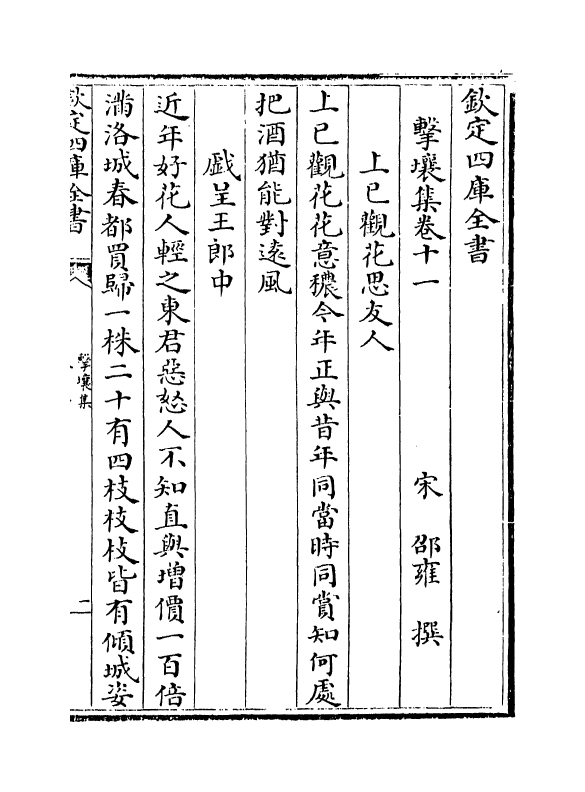 欽定四庫全書
擊壤集卷十一 宋 邵雍 撰
上巳觀花思友人
上巳觀花花意穠今年正與昔年同當時同賞知何處
把酒猶能對遠風
戲呈王郎中
近年好花人輕之東君惡怒人不知直與增價一百倍
滿洛城春都買歸一株二十有四枝枝枝皆有傾城姿
欽定四庫全書
擊壤集
二